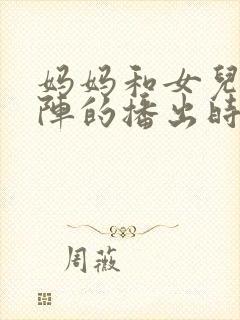 妈妈和女兒
陣的播出時
周薇